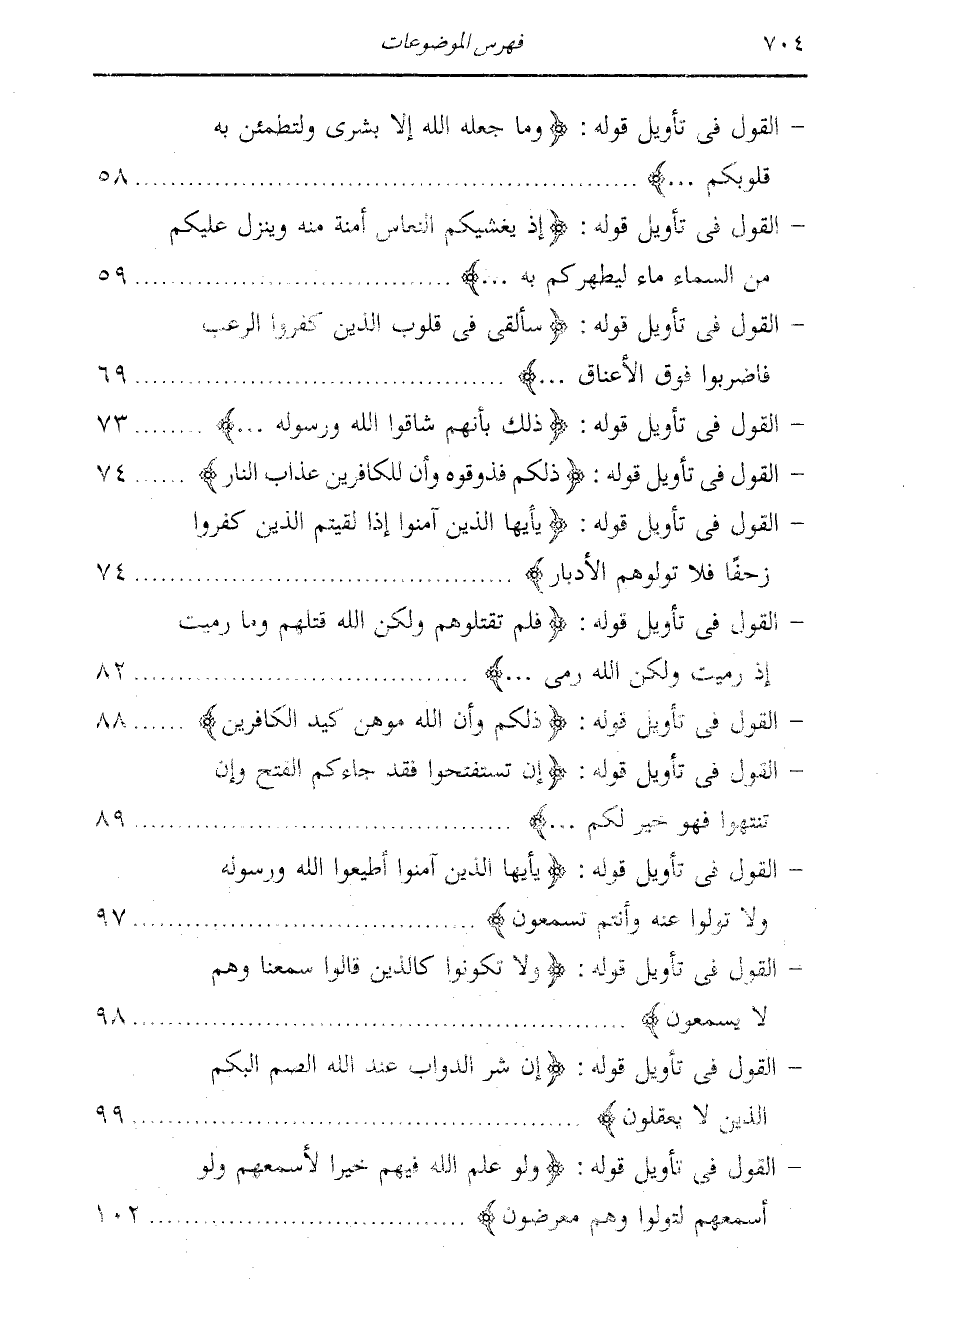 ٧٠٤ فهرس الموضوعات
– القول فى تأويل قوله : ﴿ وما جعله الله إلا بشرى ولتطمئن به
قلوبكم ...﴾ ........................................ ٥٨
– القول فى تأويل قوله : ﴿ إذ يغشيكم النعاس أمنة منه وينزل عليكم
من السماء ماء ليطهركم به ...﴾ ........................ ٥٩
– القول فى تأويل قوله : ﴿ سألقى فى قلوب الذين كفروا الرعب
فاضربوا فوق الأعناق ...﴾ ............................ ٦٩
– القول فى تأويل قوله : ﴿ ذلك بأنهم شاقوا الله ورسوله ...﴾ ....... ٧٣
– القول فى تأويل قوله : ﴿ ذلكم فذوقوه وأن للكافرين عذاب النار ﴾ ...... ٧٤
– القول فى تأويل قوله : ﴿ يأيها الذين آمنوا إذا لقيتم الذين كفروا
زحفًا فلا تولوهم الأدبار ﴾ ............................ ٧٤
– القول فى تأويل قوله : ﴿ فلم تقتلوهم ولكن الله قتلهم وما رميت
إذ رميت ولكن الله رمى ...﴾ ........................ ٨٢
– القول فى تأويل قوله : ﴿ ذلكم وأن الله موهن كيد الكافرين ﴾ ...... ٨٨
– القول فى تأويل قوله : ﴿ إن تستفتحوا فقد جاءكم الفتح وإن
تنتهوا فهو خير لكم ...﴾ ............................ ٨٩
– القول فى تأويل قوله : ﴿ يأيها الذين آمنوا أطيعوا الله ورسوله
ولا تولوا عنه وأنتم تسمعون ﴾ ........................ ٩٧
– القول فى تأويل قوله : ﴿ ولا تكونوا كالذين قالوا سمعنا وهم
لا يسمعون ﴾ .................................... ٩٨
– القول فى تأويل قوله : ﴿ إن شر الدواب عند الله الصم البكم
الذين لا يعقلون ﴾ ................................ ٩٩
– القول فى تأويل قوله : ﴿ ولو علم الله فيهم خيرا لأسمعهم ولو
أسمعهم لتولوا وهم معرضون ﴾ ........................ ١٠٢